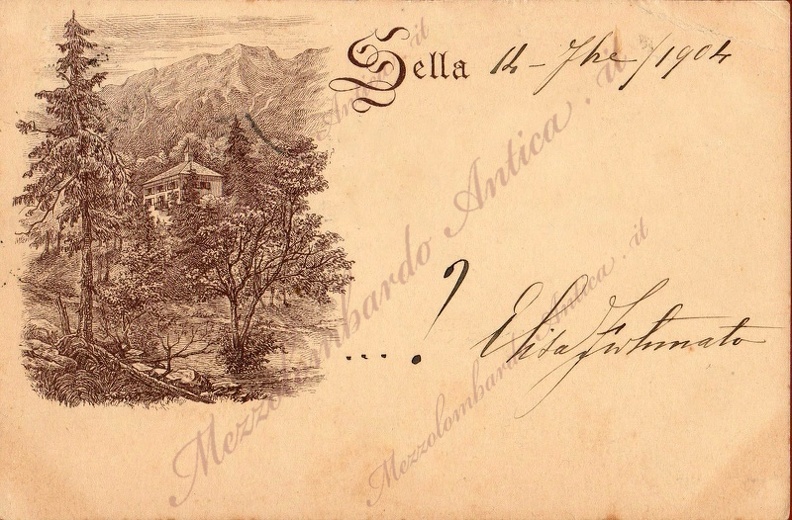 Sella 14 - 7bre / 1904
...!?
Elisa Fortunato
Mezzolombardo Antica.it
Mezzolombardo Antica.it
Antica.it